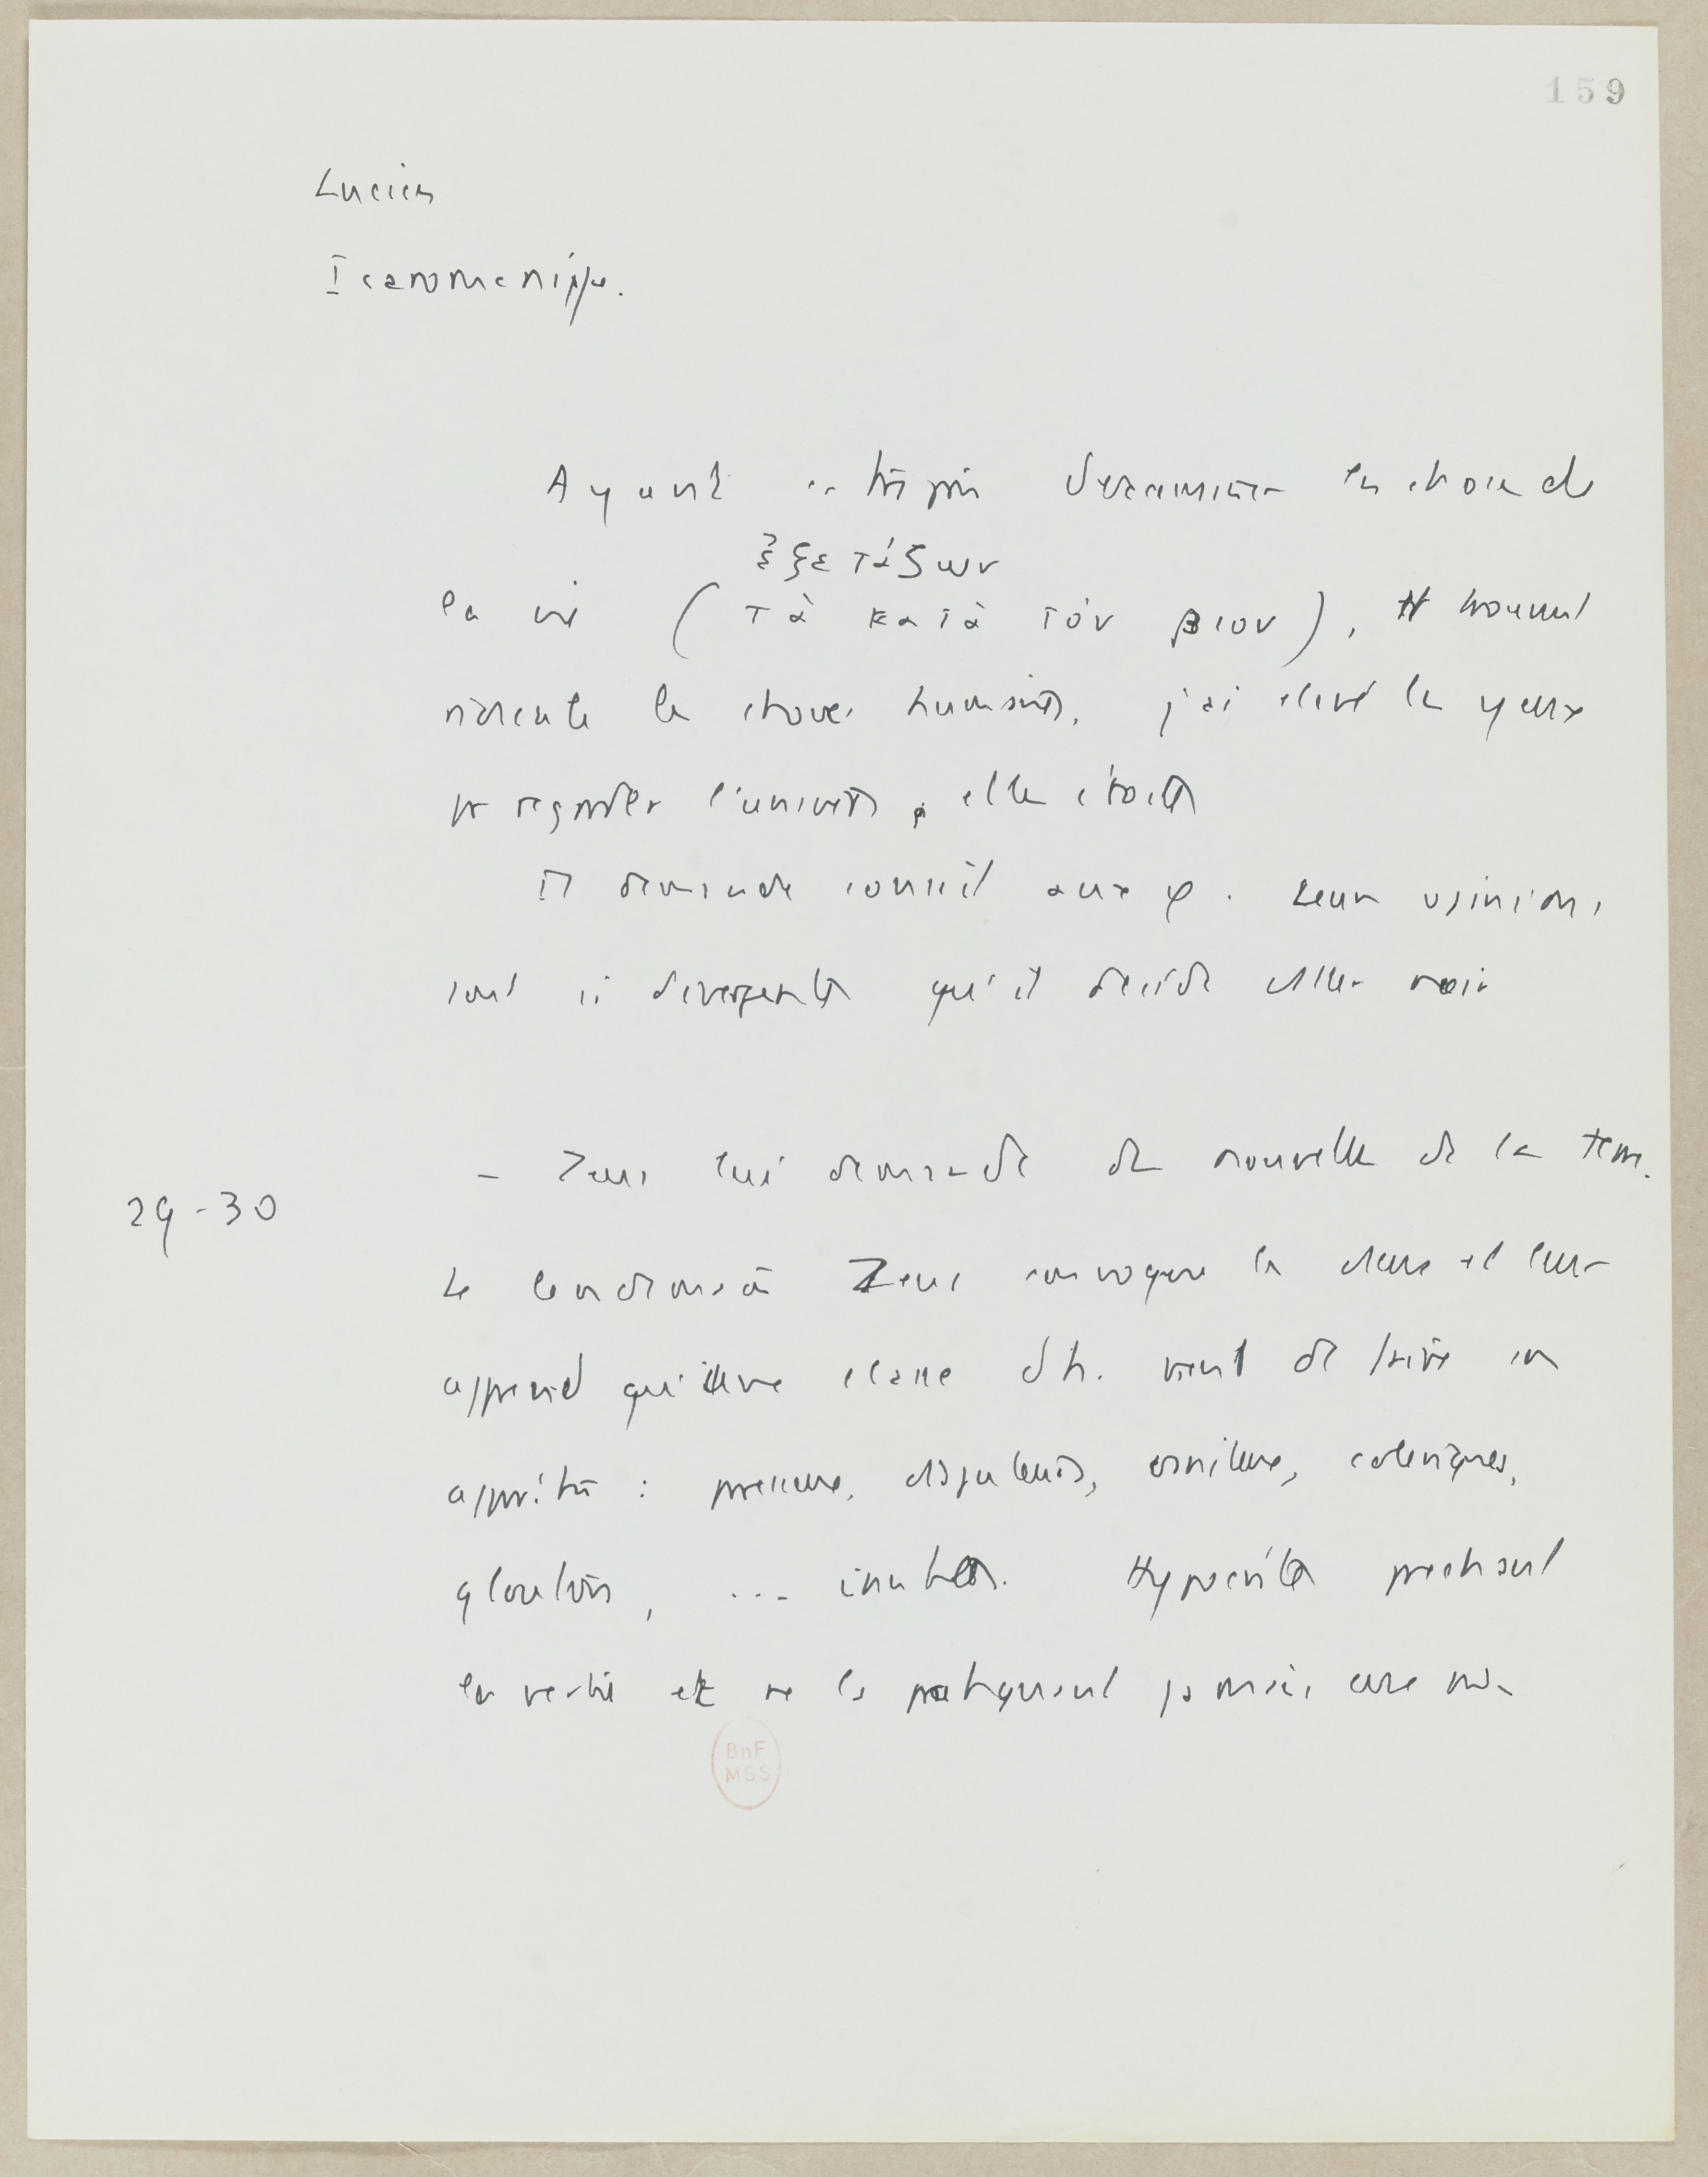 159
Lucien
Icaromenippe.
Ayant entrepris d'examiner les choses de
ἐξετάζων
la vie (τὰ κατὰ τόν βιον), trouvant
ridicule les choses humaines, j'ai élevé les yeux
pr regarder l'univers, et les étoiles
Il demande conseil aux φ. Leurs opinions
sont si divergentes qu'il décide d'aller voir
29-30
- Zeus lui demande des nouvelles de la terre.
Le lendemain Zeus convoque les dieux et leur
apprend qu'une classe d'h. vient de faire son
apparition : paresseux, disputeurs, vaniteux, colériques,
gloutons, ... inutiles. Hypocrites prechant
la vertu et ne la pratiquant jamais
BnF
MSS